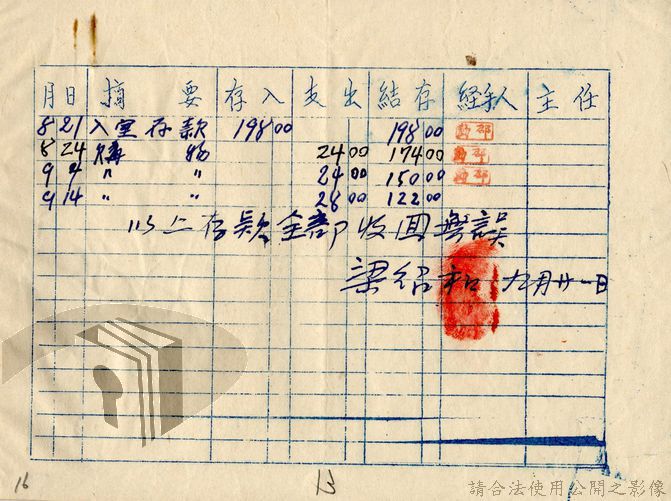 月 日 摘 要 存入 支出 結存 経手人 主任
8 21 入室存款 198 00 198 00
8 24 購物 24 00 174 00
9 4 〃 〃 24 00 150 00
9 14 〃 〃 28 00 122 00
以上存款全部收回無誤
梁紹和 九月廿一日
16 13
請合法使用公開之影像